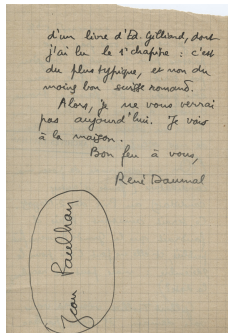 d'un livre d'Ed. Gilliard, dont
j'ai lu le 1e chapitre : c'est
du plus typique, et non du
moins bon suisse romand.
Alors, je ne vous verrai
pas aujourd'hui. Je vais
à la maison.
Bon feu à vous,
René Daumal
Jean Paulhan